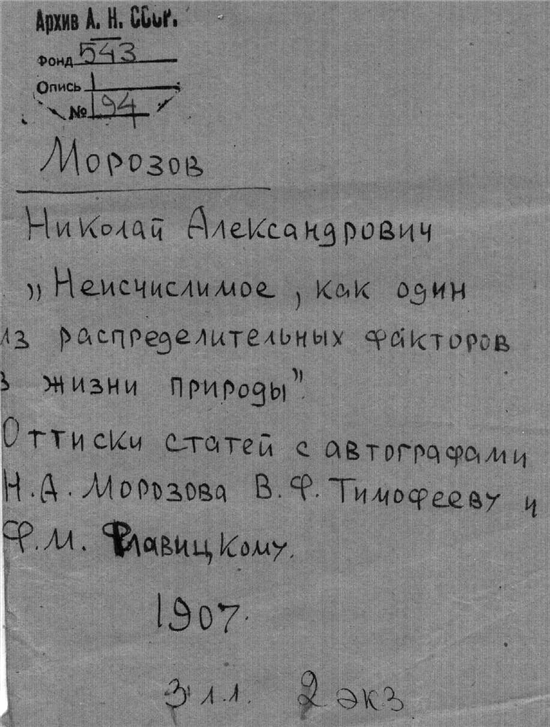 Архив А. Н. СССР.
Фонд 543
Опись 1
№ 194
Морозов
Николай Александрович
„Неисчислимое, как один
из распределительных факторов
в жизни природы".
Оттиски статей с автографами
Н.А. Морозова В.Ф. Тимофееву и
Ф.М. Флавицкому.
1907.
3 л.л. 2 экз